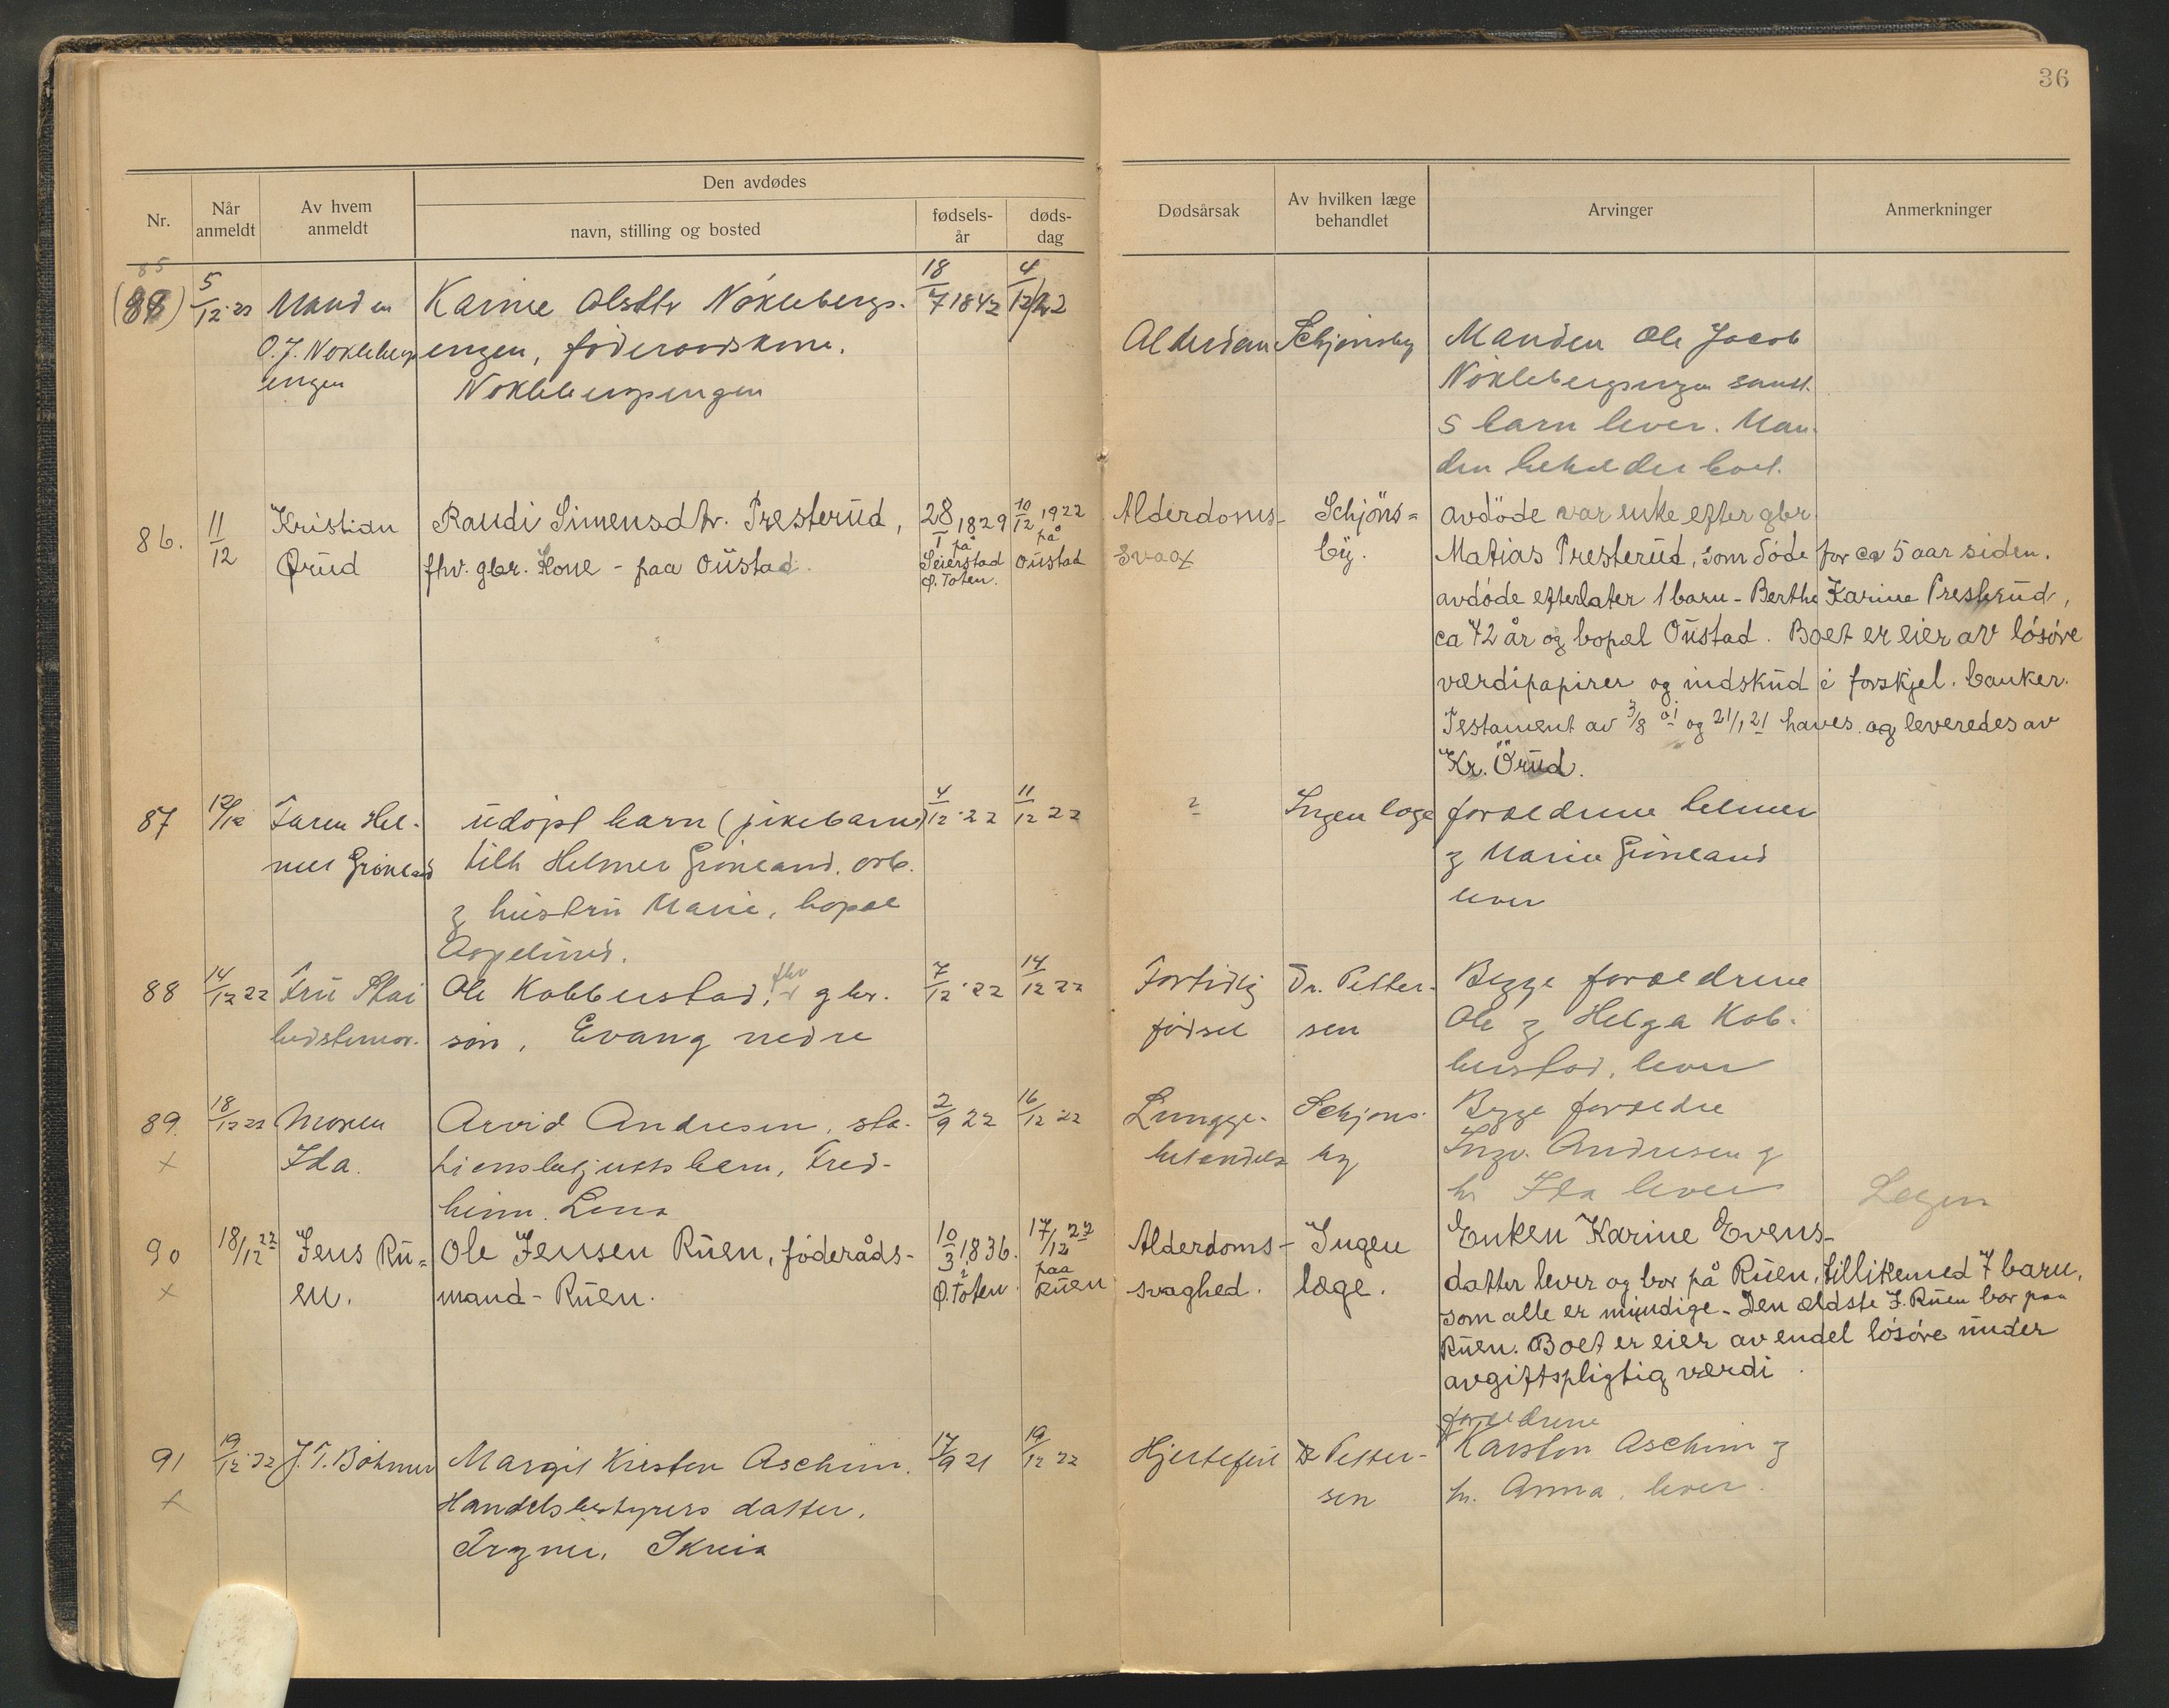 36
Den avdødes
Nr.
Når anmeldt
Av hvem anmeldt
navn, stilling og bosted
fødsels-år
døds-dag
Dødsårsak
Av hvilken læge behandlet
Arvinger
Anmerkninger
85
(88) 5/12 22 Manden Karine Olsdtr Nöklebergs- 18/7 1842 4/12 22
O.J. Nökleberg engen, föderaadskone.
engen Nöklebergengen
Alderdom Schjønsby Manden Ole Jacob
Nöklebergsengen samt
5 barn lever. Man-
den beholder boet.
86. 11/12 Kristian Randi Simensdtr. Presterud, 28/1 1829 10/12 1922
på på
Ørud fhv. gbr. Kone - paa Oustad. Seierstad Oustad
Ø. Toten.
Alderdoms- Schjöns= avdöde var enke efter gbr
svag by. Matias Presterud, som döde for ca 5 aar siden.
avdöde efterlater 1 barn - Berthe Karine Presterud,
ca 72 år og bopæl Oustad. Boet er eier av lösöre
værdipapirer og indskud i forskjel. banker.
Testament av 3/8 01 og 21/1 21 haves og leveredes av
Kr. Örud.
87 12/12 Faren Hel- udöpt barn (pikebarn) 4/12 22 11/12 22
mer Grönland tilh Helmer Grönland. arb.
g hustru Marie, bopæl
? Ingen læge forældrene Helmer
g Marie Grönland
lever
88 14/12 22 Fru Ole Kobberstad, fhv gbr. 7/12 22 14/12 22
bedstemor. sön, Evang nedre
Fortidlig Dr. Petter- Begge forældrene
födsel sen Ole g Helga Kob-
berstad, lever
89. 18/12 22 Moren Arvid Andresen, sta- 2/9 22 16/12 22
x Ida. tionsbetjents barn, Fred-
heim. Lena
Lungge- Schjöns- Begge forældre
betendels by Ingv. Andresen g
h. Ida lever
Legen
90 18/12 22 Jens Ru= Ole Jensen Ruen, föderåds- 10/3 1836. 17/12 22
x en. mand - Ruen. i Ø. Toten paa Ruen
Alderdoms- Ingen Enken Karine Evens-
svaghed. læge. datter lever og bor på Ruen, tillikemed 7 barn,
som alle er myndige - Den ældste J. Ruen bor paa
Ruen. Boet er eier av endel lösöre under
avgiftspligtig værdi.
91 19/12 22 J. T. Böhmer Margit Kirsten Aschim. 17/9 21 19/12 22
x Handelsbestyrers datter.
Skreia
forældrene
Hjertefeil Dr Petter- Karsten Aschim g
sen h. Anna, lever.